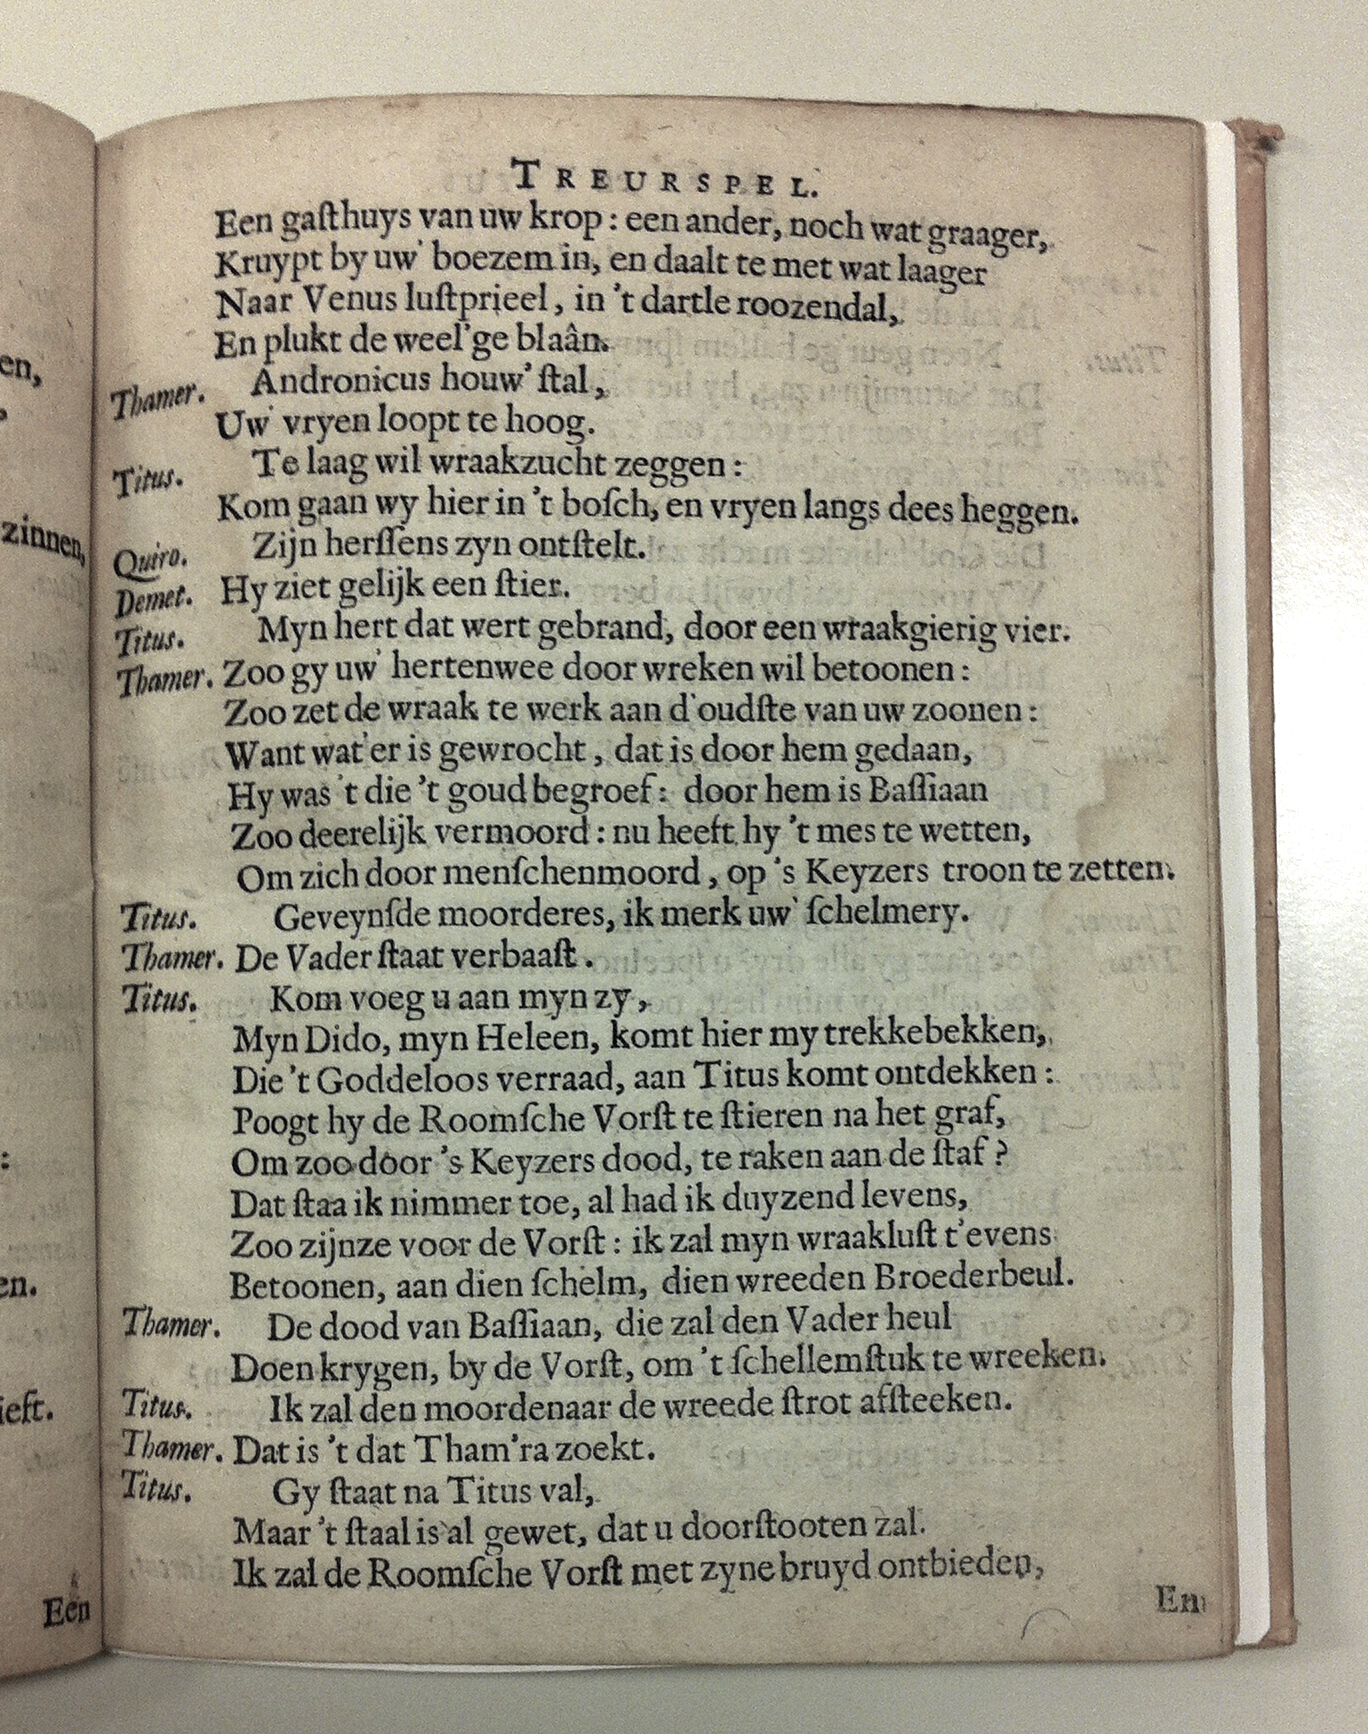 TREURSPEL.
Een gaſthuys van uw krop: een ander, noch wat graager,
Kruypt by uw' boezem in, en daalt te met wat laager
Naar Venus luſtprieel, in 't dartle roozendal,
En plukt de weel'ge blaân.
Thamer. Andronicus houw' ſtal,
Uw' vryen loopt te hoog.
Titus. Te laag wil wraakzucht zeggen:
Kom gaan wy hier in 't boſch, en vryen langs dees heggen.
Quiro. Zijn herſſens zyn ontſtelt.
Demet. Hy ziet gelijk een ſtier.
Titus. Myn hert dat wert gebrand, door een wraakgierig vier.
Thamer. Zoo gy uw' hertenwee door wreken wil betoonen:
Zoo zet de wraak te werk aan d'oudſte van uw zoonen:
Want wat'er is gewrocht, dat is door hem gedaan,
Hy was 't die 't goud begroef: door hem is Baſſiaan
Zoo deerelijk vermoord: nu heeft hy 't mes te wetten,
Om zich door menſchenmoord, op 's Keyzers troon te zetten.
Titus. Geveynſde moorderes, ik merk uw' ſchelmery.
Thamer. De Vader ſtaat verbaaſt.
Titus. Kom voeg u aan myn zy,
Myn Dido, myn Heleen, komt hier my trekkebekken,
Die 't Goddeloos verraad, aan Titus komt ontdekken:
Poogt hy de Roomſche Vorſt te ſtieren na het graf,
Om zoo door 's Keyzers dood, te raken aan de ſtaf?
Dat ſtaa ik nimmer toe, al had ik duyzend levens,
Zoo zijnze voor de Vorſt: ik zal myn wraakluſt t'evens
Betoonen, aan dien ſchelm, dien wreeden Broederbeul.
Thamer. De dood van Baſſiaan, die zal den Vader heul
Doen krygen, by de Vorſt, om 't ſchellemſtuk te wreeken.
Titus. Ik zal den moordenaar de wreede ſtrot afſteeken.
Thamer. Dat is 't dat Tham'ra zoekt.
Titus. Gy ſtaat na Titus val,
Maar 't ſtaal is al gewet, dat u doorſtooten zal.
Ik zal de Roomſche Vorſt met zyne bruyd ontbieden,
En
en,
zinnen,
:
en.
ieft.
Een